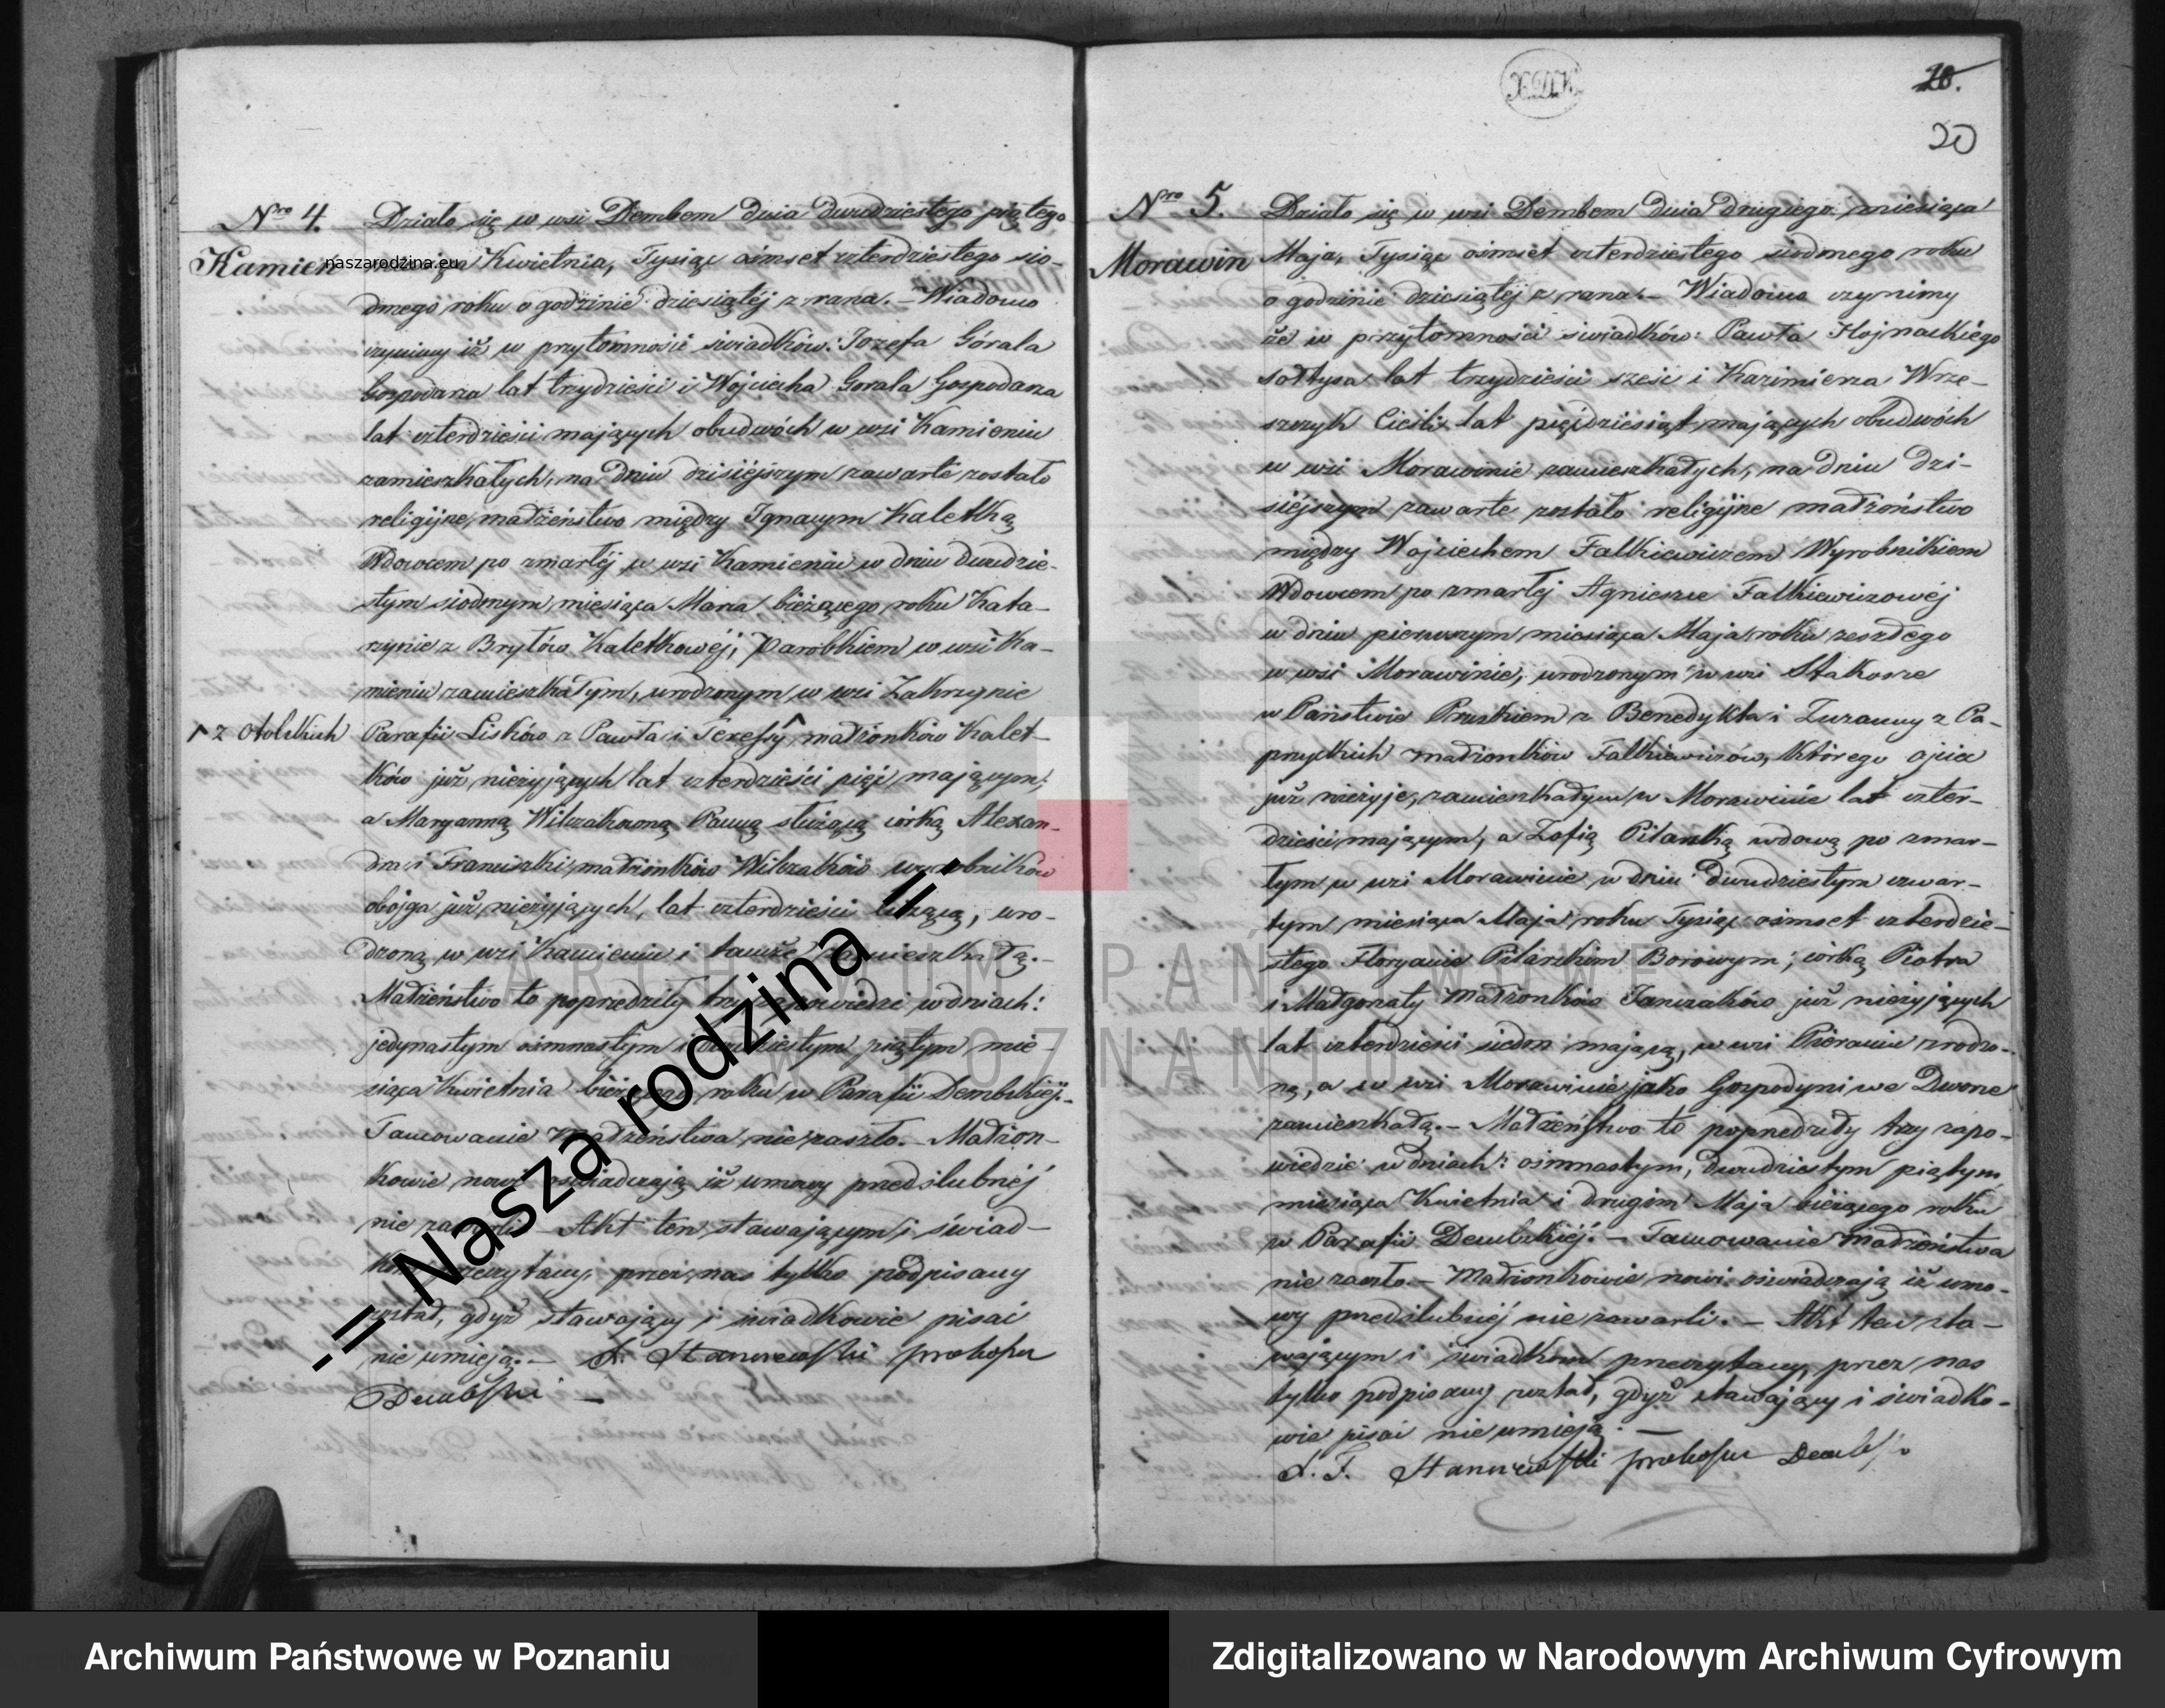 Nro 4. Działo się w wsi Dembem dnia dwudziestego piątego
Kamień naszarodzina.eu Kwietnia, Tysiąc ośmset czterdziestego sió-
dmego roku o godzinie dziesiątéj z rana. – Wiadomo
czynimy iż w przytomności świadków: Jozefa Górala
Gospodarza lat trzydzieści i Wojciecha Gorala Gospodarza
lat czterdzieści mających obudwóch w wsi Kamieniu
zamieszkałych, na dniu dzisiéjszym zawarte zostało
religijne małżeństwo między Ignacym Kaletką
Wdowcem po zmarłéj w wsi Kamieniu w dniu dwudzie-
stym siodmym miesiąca Marca bieżącego roku Kata-
rzynie z Brylów Kaletkowéj, Parobkiem w wsi Ka-
mieniu zamieszkałym, urodzonym w wsi Zakrzynie
z Parafii Lisków z Pawła i Teressy małżonków Kalet-
ków już nieżyjących lat czterdzieści pięć mającym,
a Maryanną Wilczakówną Panną służącą córką Alexan-
dra i Franciszki małżonków Wilczaków wyrobników
obojga już nieżyjących, lat czterdzieści liczącą, uro-
dzoną w wsi Kamieniu i tamże zamieszkałą. –
Małżeństwo to poprzedziły trzy zapowiedzi w dniach:
jedynastym ośmnastym i dwudziestym piątym mie-
siąca Kwietnia bieżącego roku w Parafii Dembskiéj. –
Tamowanie małżeństwa nie zaszło. – Małżon-
kowie nowi oświadczają iż umowy przedślubnéj
nie zawarli – Akt ten stawającym i świad-
kom przeczytany, przez nas tylko podpisany
został, gdyż stawający i świadkowie pisać
nie umieją. – Stanczewsski proboszcz
Dembsski –
18.
20
Nro 5. Działo się w wsi Dembem dnia drugiego miesiąca
Morawin Maja, Tysiąc ośmset czterdziestego siodmego roku
o godzinie dziesiątéj z rana. – Wiadomo czynimy
że w przytomności świadków: Pawła Hojnackiego
sołtysa lat trzydzieści sześć i Kazimierza Wrze-
szczyk Cieśli lat pięćdziesiąt mających obudwóch
w wsi Morawinie zamieszkałych, na dniu dzi-
siéjszym zawarte zostało religijne małżeństwo
między Wojciechem Falkiewiczem Wyrobnikiem
Wdowcem po zmarłéj Agnieszce Falkiewiczowéj
w dniu pierwszym miesiąca Maja roku zeszłego
w wsi Morawinie, urodzonym w wsi
w Państwie Pruskiem z Benedykta i Zuzanny z Pa-
małżonków Falkiewiczów, którego ojciec
już nieżyje, zamieszkałym w Morawinie lat czter-
dzieści mającym, a Zofią Pilarską wdową po zmar-
łym w wsi Morawinie w dniu dwudziestym czwar-
tym miesiąca Maja roku Tysiąc ośmset czterdzie-
stego Floryanie Pilarskim Borowym; córką Piotra
i Małgorzaty małżonków Janczaków już nieżyjących
lat czterdzieści siedm mającą, w wsi urodzo-
ną, a w wsi Morawinie jako Gospodyni we Dworze
zamieszkałą. – Małżeństwo to poprzedziły trzy zapo-
wiedzie w dniach: ośmnastym, dwudziestym piątym
miesiąca Kwietnia i drugim Maja bieżącego roku
w Parafii Dembskiéj. – Tamowanie małżeństwa
nie zaszło. – Małżonkowie nowi oświadczają iż umo-
wy przedślubnéj nie zawarli. – Akt ten sta-
wającym i świadkom przeczytany, przez nas
tylko podpisany został, gdyż stawający i świadko-
wie pisać nie umieją. –
Stanczewsski proboszcz
-= Nasza rodzina =-
ARCHIWUM PAŃSTWOWE
W POZNANIU
Archiwum Państwowe w Poznaniu
Zdigitalizowano w Narodowym Archiwum Cyfrowym